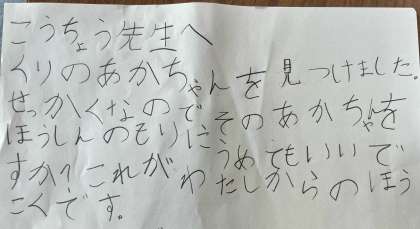 こうちょう先生へ
くりのあかちゃんを見つけました。
せっかくなのでそのあかちゃんを
ほうしんのもりにうめてもいいで
すか？これがわたしからのほう
こくです。